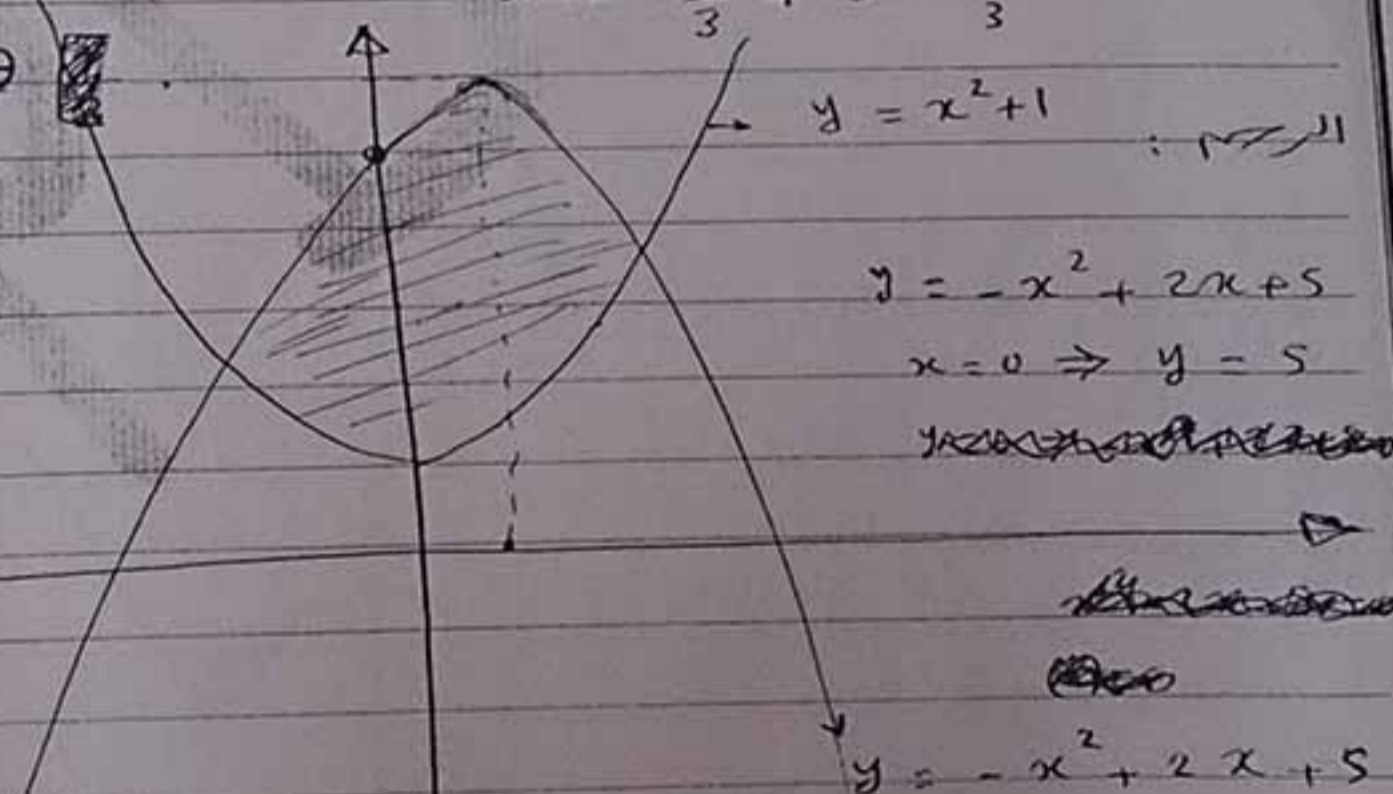 3 3
y = x² + 1
الرسم :
y = - x² + 2x + 5
x = 0 ⇒ y = 5
y = - x² + 2x + 5